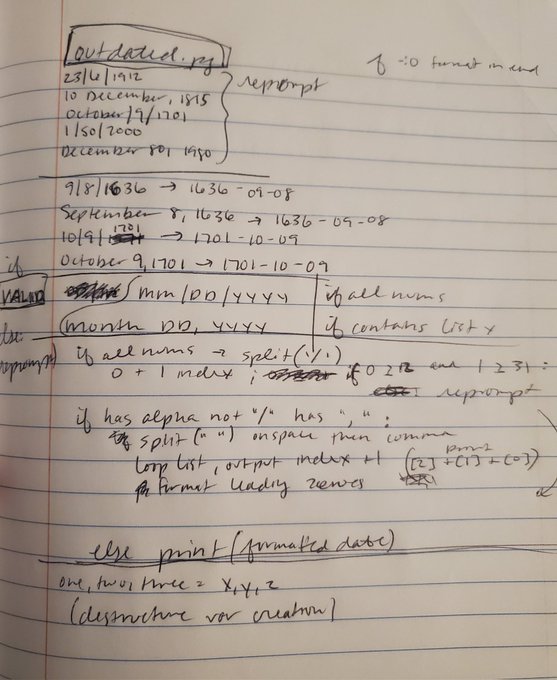 outdated.py
f -:0 format in end
23/6/1912
10 December, 1815
October/9/1701
1/50/2000
December 80, 1980
reprompt
9/8/1636 → 1636-09-08
September 8, 1636 → 1636-09-08
10/9/1701 → 1701-10-09
October 9, 1701 → 1701-10-09
if
VALID
mm/DD/YYYY
if all nums
month DD, YYYY
if contains list x
else
reprompt
if all nums → split('/')
0 + 1 index ; if 0 ≥ 12 and 1 ≥ 31 :
reprompt
if has alpha not "/" has "," :
split(" ") on space then comma
loop list, output index +1
print
([2] + [1] + [0])
format leading zeroes
else print(formatted date)
one, two, three = x, y, z
(destructure var creation)